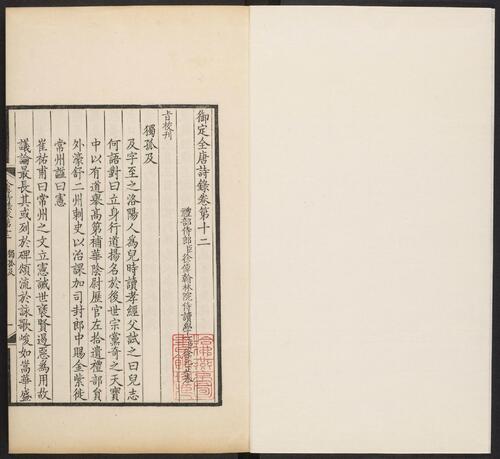 御定全唐詩錄卷第十二
禮部侍郎臣徐倬翰林院侍讀學
旨校刊
獨孤及
及字至之洛陽人爲兒時讀孝經父試之曰兒志
何語對曰立身行道揚名於後世宗黨奇之天寶
中以有道舉高第補華陰尉歷官左拾遺禮部員
外濠舒二州刺史以治課加司封郎中賜金紫徙
常州諡曰憲
崔祐甫曰常州之文立憲誡世褒賢遏惡爲用故
議論最長其或列於碑頌流於詠歌峻如嵩華盛
獨孤及
一